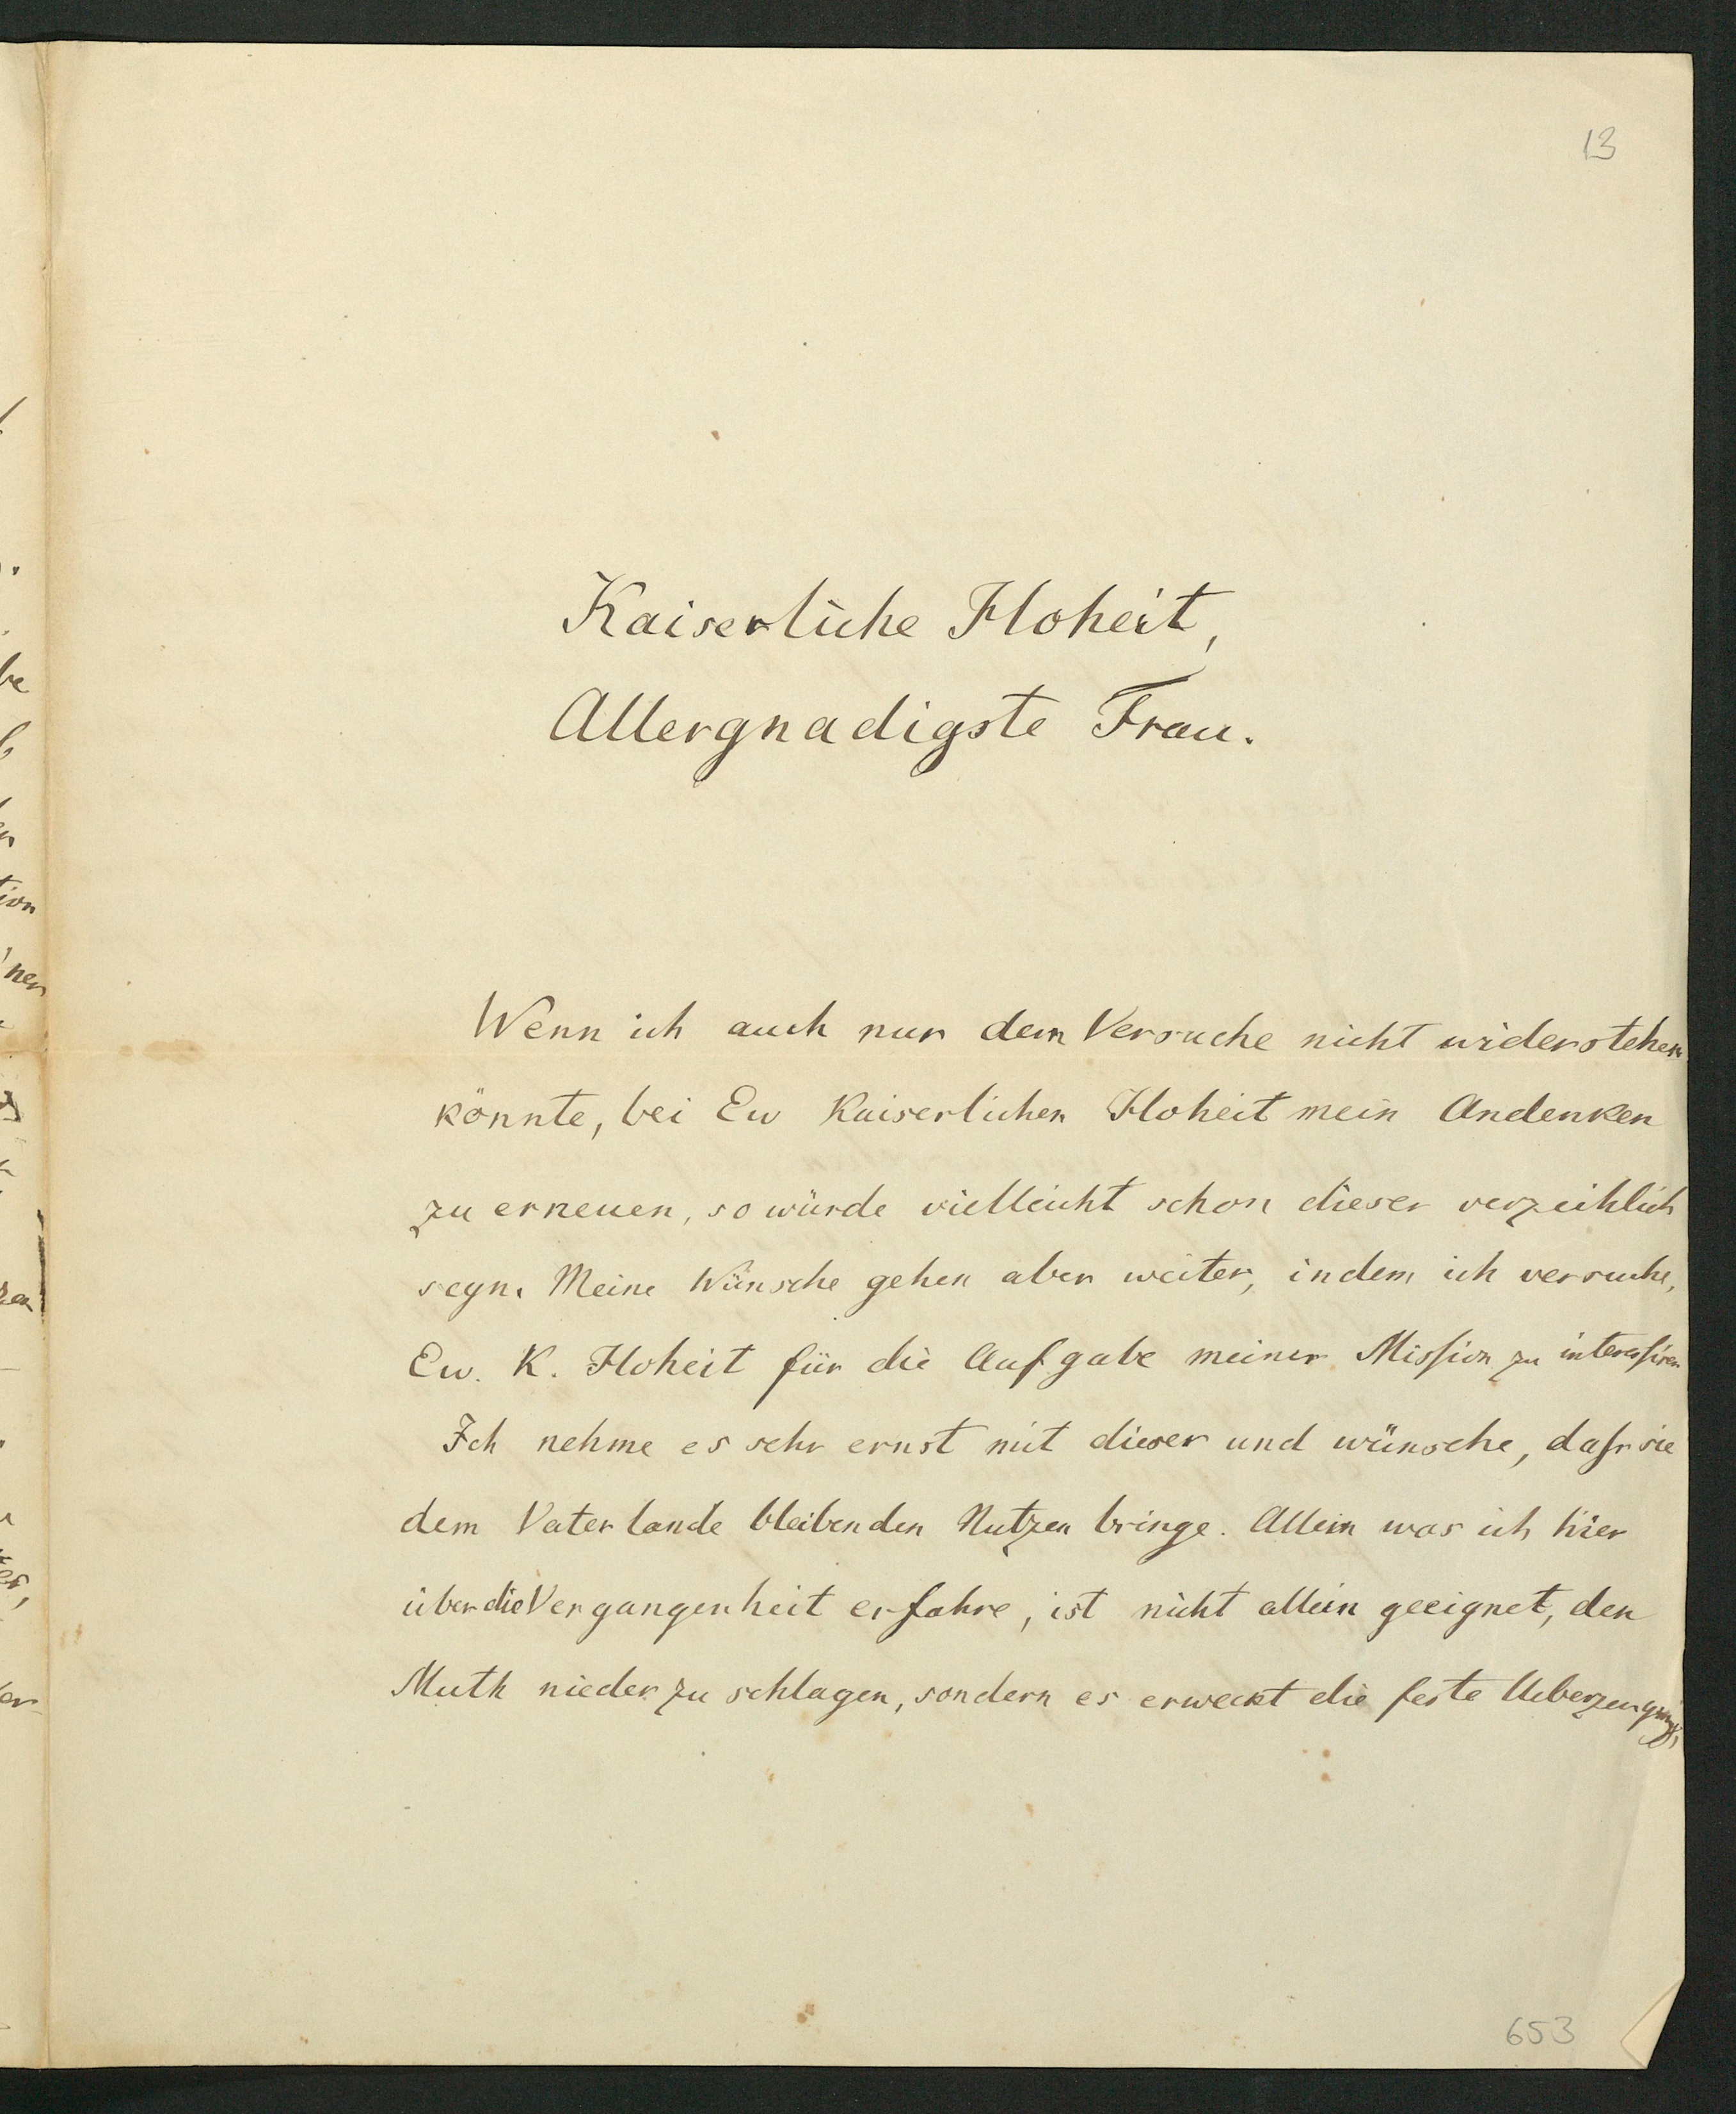 13
Kaiserliche Hoheit,
Allergnadigste Frau.
Wenn ich auch nur dem Versuche nicht widerstehen
könnte, bei Ew Kaiserlichen Hoheit mein Andenken
zu erneuen, so würde vielleicht schon dieser verzeihlich
seyn. Meine Wünsche gehen aber weiter, indem ich versuche,
Ew. K. Hoheit für die Aufgabe meiner Mission zu interessiren
Ich nehme es sehr ernst mit dieser und wünsche, dass sie
dem Vaterlande bleibenden Nutzen bringe. Allein was ich hier
über die Vergangenheit erfahre, ist nicht allein geeignet, den
Muth nieder zu schlagen, sondern es erweckt die feste Ueberzeugung,
653